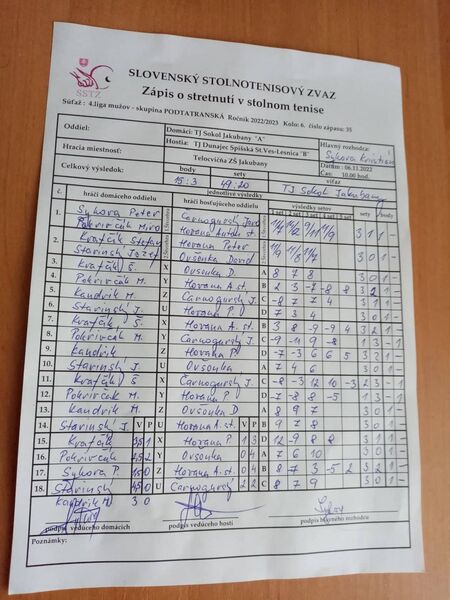 SSTZ
SLOVENSKÝ STOLNOTENISOVÝ ZVAZ
Zápis o stretnutí v stolnom tenise
Súťaž : 4.liga mužov - skupina PODTATRANSKÁ Ročník 2022/2023 Kolo: 6. číslo zápasu: 35
Oddiel: Domáci: TJ Sokol Jakubany "A" Hlavný rozhodca:
Hostia: TJ Dunajec Spišská St.Ves-Lesnica "B" Sykora
Hracia miestnosť: Telocvičňa ZŠ Jakubany Dátum: 06.11.2022
Čas: 10.00 hod.
Celkový výsledok: body sety víťaz
15:3 49:20 TJ Sokol Jakubany
jednotlivé výsledky
č. hráči domáceho oddielu hráči hosťujúceho oddielu výsledky setov sety body
1 set 2 set 3 set 4 set 5 set
1. Sykora Peter Čarnogurský 3 1 1 -
Pokrivčák Miro Horana Anton st.
2. Kvafčák Štefan Horana Peter 3 0 1 -
Stavinský Jozef Ovšonka David
3. Kvafčák Š. X Ovšonka D. A 8 7 8 3 0 1 -
4. Pokrivčák M. Y Horana A. st. B 2 3 -7 -8 8 3 2 1 -
5. Kandrik M. Z Čarnogurský J. C -8 7 7 4 3 1 1 -
6. Stavinský J. U Horana P. D 7 3 4 3 0 1 -
7. Kvafčák Š. X Horana A. st. B 3 8 -9 -9 4 3 2 1 -
8. Pokrivčák M. Y Čarnogurský J. C -9 -11 9 -8 1 3 - 1
9. Kandrik Z Horana P. D -7 -3 6 6 5 3 2 1 -
10. Stavinský J. U Ovšonka A 7 4 6 3 0 1 -
11. Kvafčák Š X Čarnogurský J. C -8 -3 12 10 -3 2 3 - 1
12. Pokrivčák M. Y Horana P. D -7 -8 8 -5 1 3 - 1
13. Kandrik M. Z Ovšonka D. A 8 9 7 3 0 1 -
14. Stavinský J. V P U Horana A. st. V P B 9 7 8 3 0 1 -
15. Kvafčák X Horana P 1 3 D 12 -9 8 8 3 1 1 -
16. Pokrivčák Y Ovšonka 0 4 A 7 6 10 3 0 1 -
17. Sykora P. Z Horana A. st. 0 4 B 8 7 3 -5 2 3 1 1 -
18. Stavinský U Čarnogurský 2 2 C 8 7 9 3 0 1 -
Kandrik M 3 0
podpis vedúceho domácich podpis vedúceho hostí podpis hlavného rozhodcu
Poznámky: